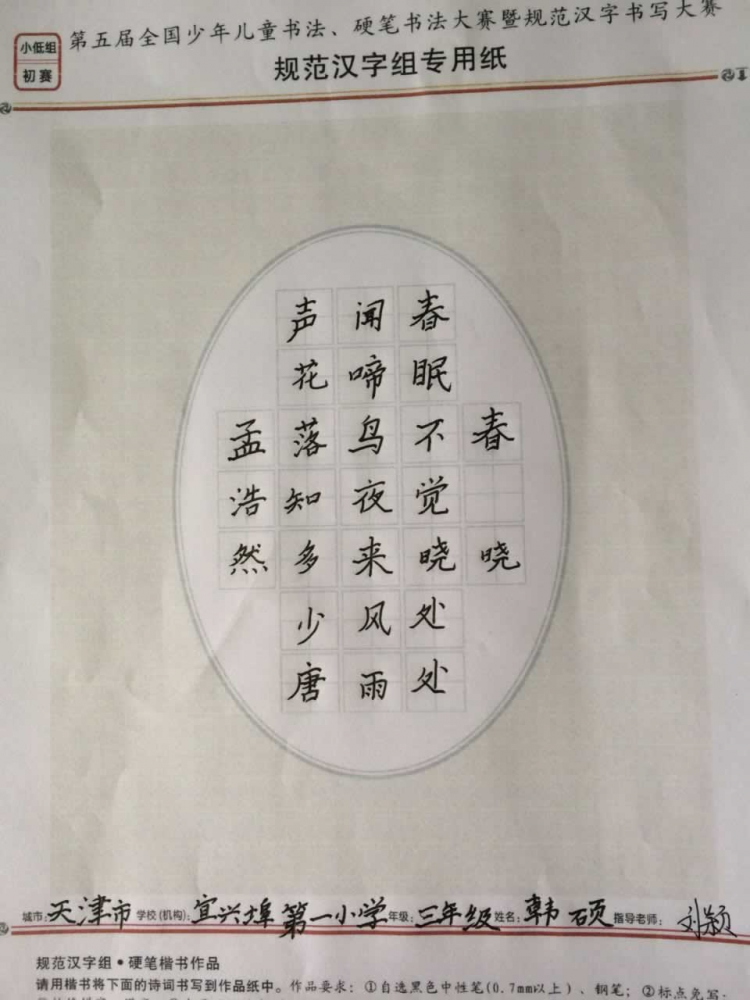 小低组
初赛
第五届全国少年儿童书法、硬笔书法大赛暨规范汉字书写大赛
规范汉字组专用纸
春晓
春眠不觉晓处处
闻啼鸟夜来风雨
声花落知多少唐
孟浩然
城市：天津市 学校(机构)：宜兴埠第一小学 年级：三年级 姓名：韩硕 指导老师：刘颖
规范汉字组•硬笔楷书作品
请用楷书将下面的诗词书写到作品纸中。作品要求：①自选黑色中性笔(0.7mm以上)、钢笔；②标点免写；